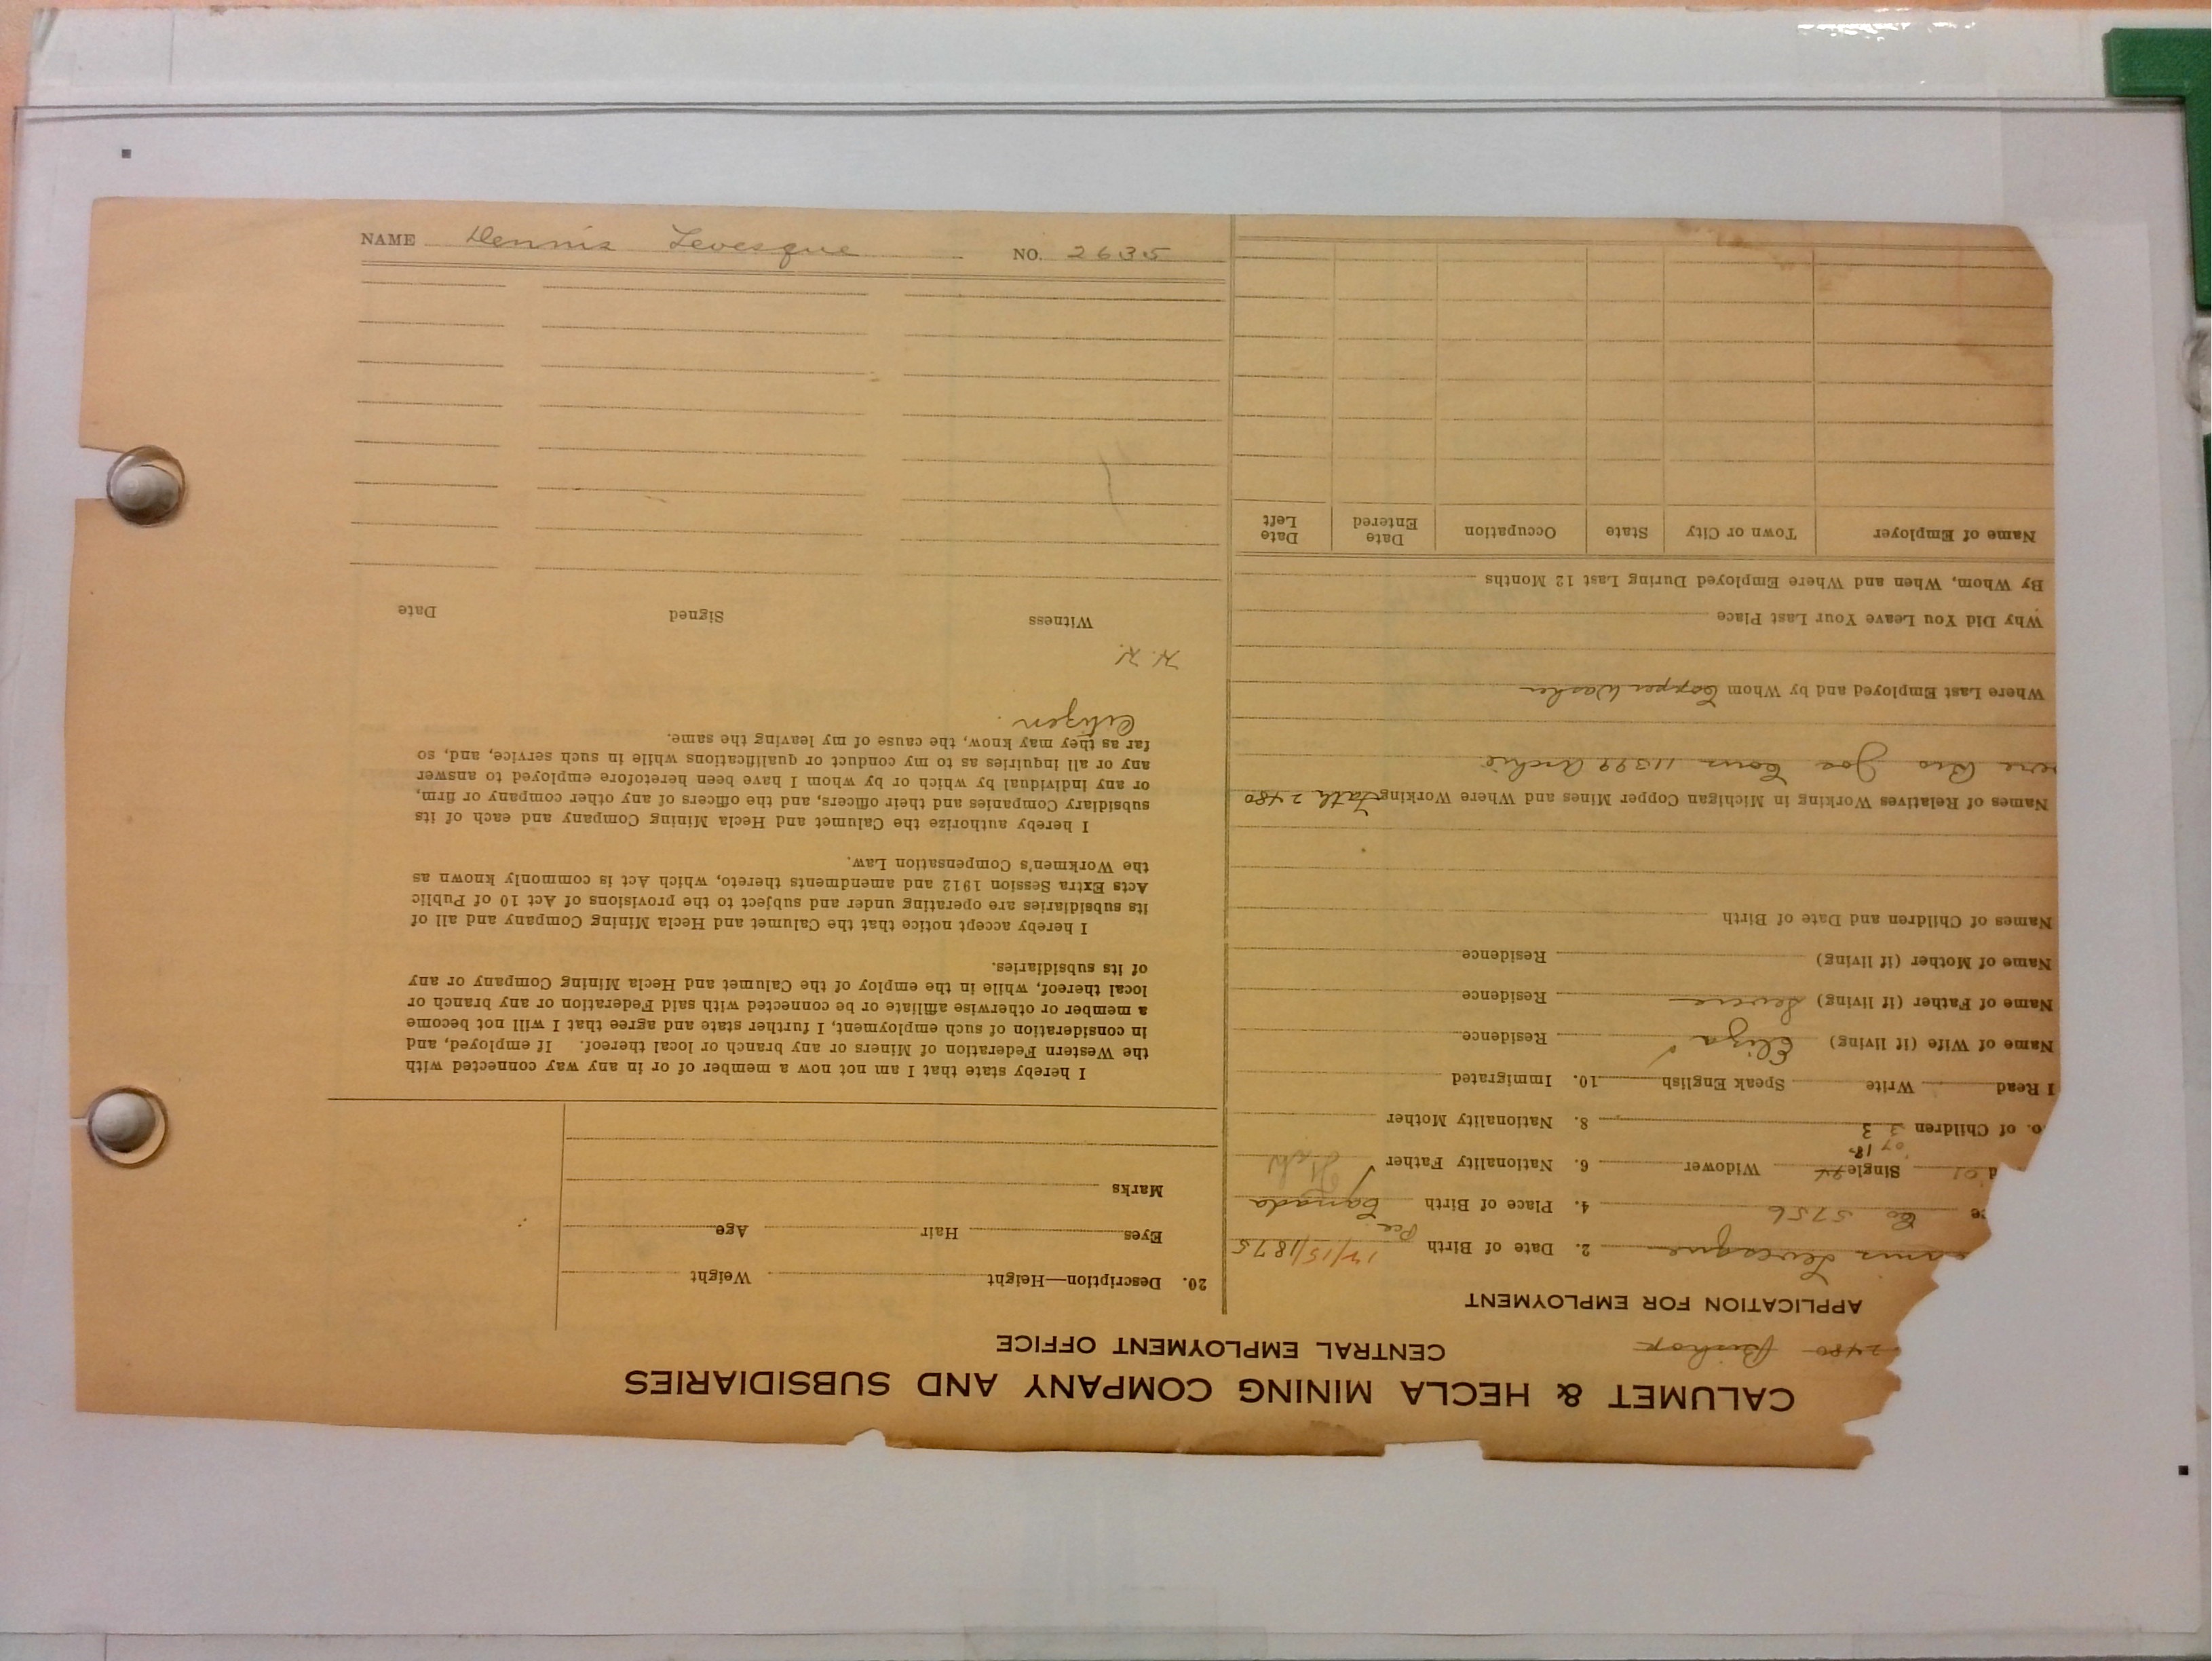 CALUMET & HECLA MINING COMPANY AND SUBSIDIARIES
CENTRAL EMPLOYMENT OFFICE
2480 Bishop
APPLICATION FOR EMPLOYMENT
Levesque 2. Date of Birth Dec 12/15/1875
Co 5756 4. Place of Birth Canada
d 01 Single 94 Widower 6. Nationality Father
07 18
o. of Children 3 3 8. Nationality Mother
I Read Write Speak English 10. Immigrated
Name of Wife (if living) Eliza Residence
Name of Father (if living) Residence
Name of Mother (if living) Residence
Names of Children and Date of Birth
Names of Relatives Working in Michigan Copper Mines and Where Working Fath 2480
Bro Joe 11399 Archie
Where Last Employed and by Whom Copper Washer
Why Did You Leave Your Last Place
By Whom, When and Where Employed During Last 12 Months
Name of Employer Town or City State Occupation Date Entered Date Left
20. Description—Height Weight
Eyes Hair Age
Marks
I hereby state that I am not now a member of or in any way connected with
the Western Federation of Miners or any branch or local thereof. If employed, and
in consideration of such employment, I further state and agree that I will not become
a member or otherwise affiliate or be connected with said Federation or any branch or
local thereof, while in the employ of the Calumet and Hecla Mining Company or any
of its subsidiaries.
I hereby accept notice that the Calumet and Hecla Mining Company and all of
its subsidiaries are operating under and subject to the provisions of Act 10 of Public
Acts Extra Session 1912 and amendments thereto, which Act is commonly known as
the Workmen's Compensation Law.
I hereby authorize the Calumet and Hecla Mining Company and each of its
subsidiary Companies and their officers, and the officers of any other company or firm,
or any individual by which or by whom I have been heretofore employed to answer
any or all inquiries as to my conduct or qualifications while in such service, and, so
far as they may know, the cause of my leaving the same.
Citizen.
Witness Signed Date
NAME Dennis Levesque NO. 2635